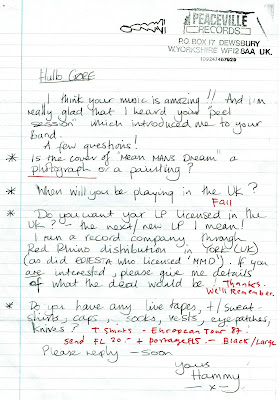 PEACEVILLE
RECORDS
P.O. BOX 17 DEWSBURY
W.YORKSHIRE WF12 8AA UK.
Hullo GORE
I think your music is amazing!! And i'm
really glad that I heard your "peel
session" which introduced me to your
Band.
A few questions!
* Is the cover of "Mean MANS Dream" a
photograph or a painting?
* When will you be playing in the UK?
Fall
* Do you want your LP licensed in the
UK? - the next/new LP I mean!
I run a record company through
Red Rhino distribution in York (UK)
(as did EDIESTA who licensed 'MMD'). If you
are interested, please give me details
of what the deal would be. Thanks.
We'll Remember.
* Do you have any live tapes, t/sweat-
shirts, caps, socks, vests, eyepatches,
knives? T Shirts - European Tour 87.
Send FL 20.- + portage FL5 - Black/Large
Please reply - soon
Yours
Hammy
- x -